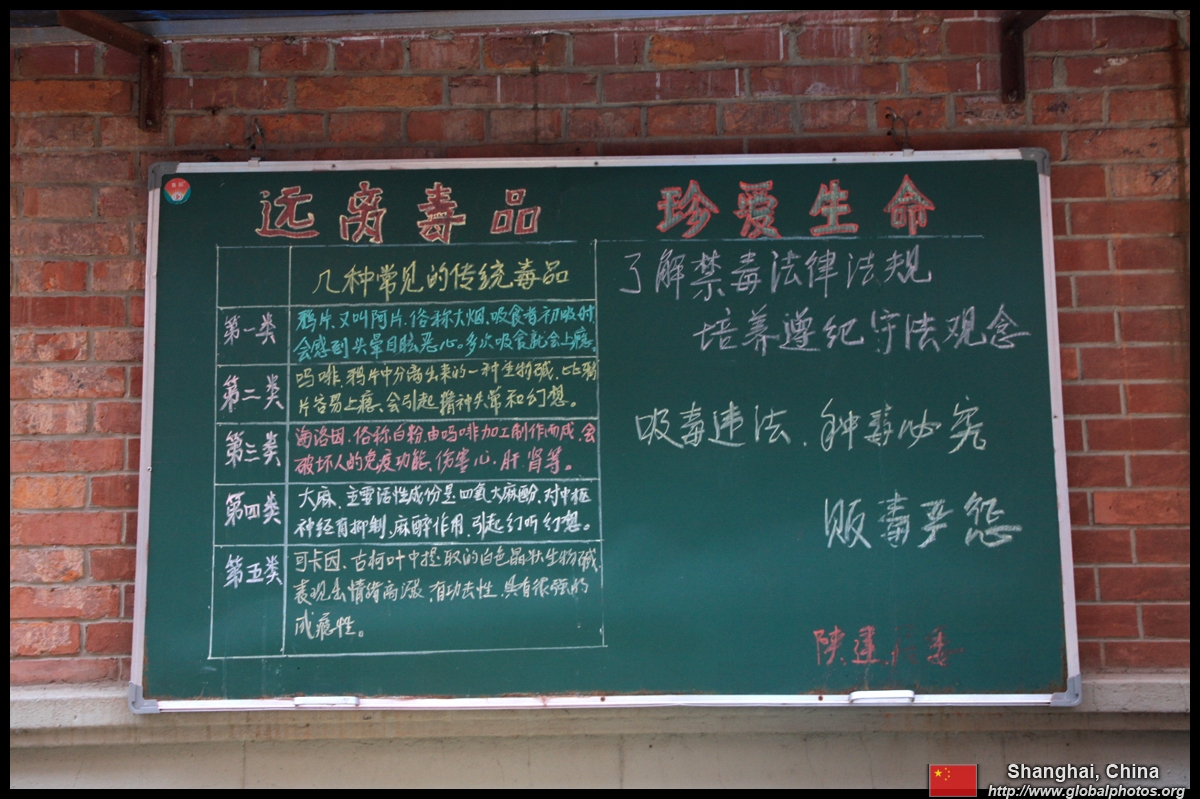 远离毒品
珍爱生命
几种常见的传统毒品
第一类
鸦片,又叫阿片,俗称大烟,吸食者初吸时
会感到头晕目眩恶心。多次吸食就会上瘾
第二类
吗啡,鸦片中分离出来的一种生物碱,比鸦
片容易上瘾,会引起精神失常和幻想。
第三类
海洛因,俗称白粉,由吗啡加工制作而成,会
破坏人的免疫功能,伤害心、肝肾等。
第四类
大麻,主要活性成份是四氢大麻酚,对中枢
神经有抑制,麻醉作用,引起幻听幻想。
第五类
可卡因,古柯叶中提取的白色晶状生物碱,
表现出情绪高涨,有功击性,具有很强的
成瘾性。
了解禁毒法律法规
培养遵纪守法观念
吸毒违法、种毒必究
贩毒严惩
陕建居委
Shanghai, China
http://www.globalphotos.org